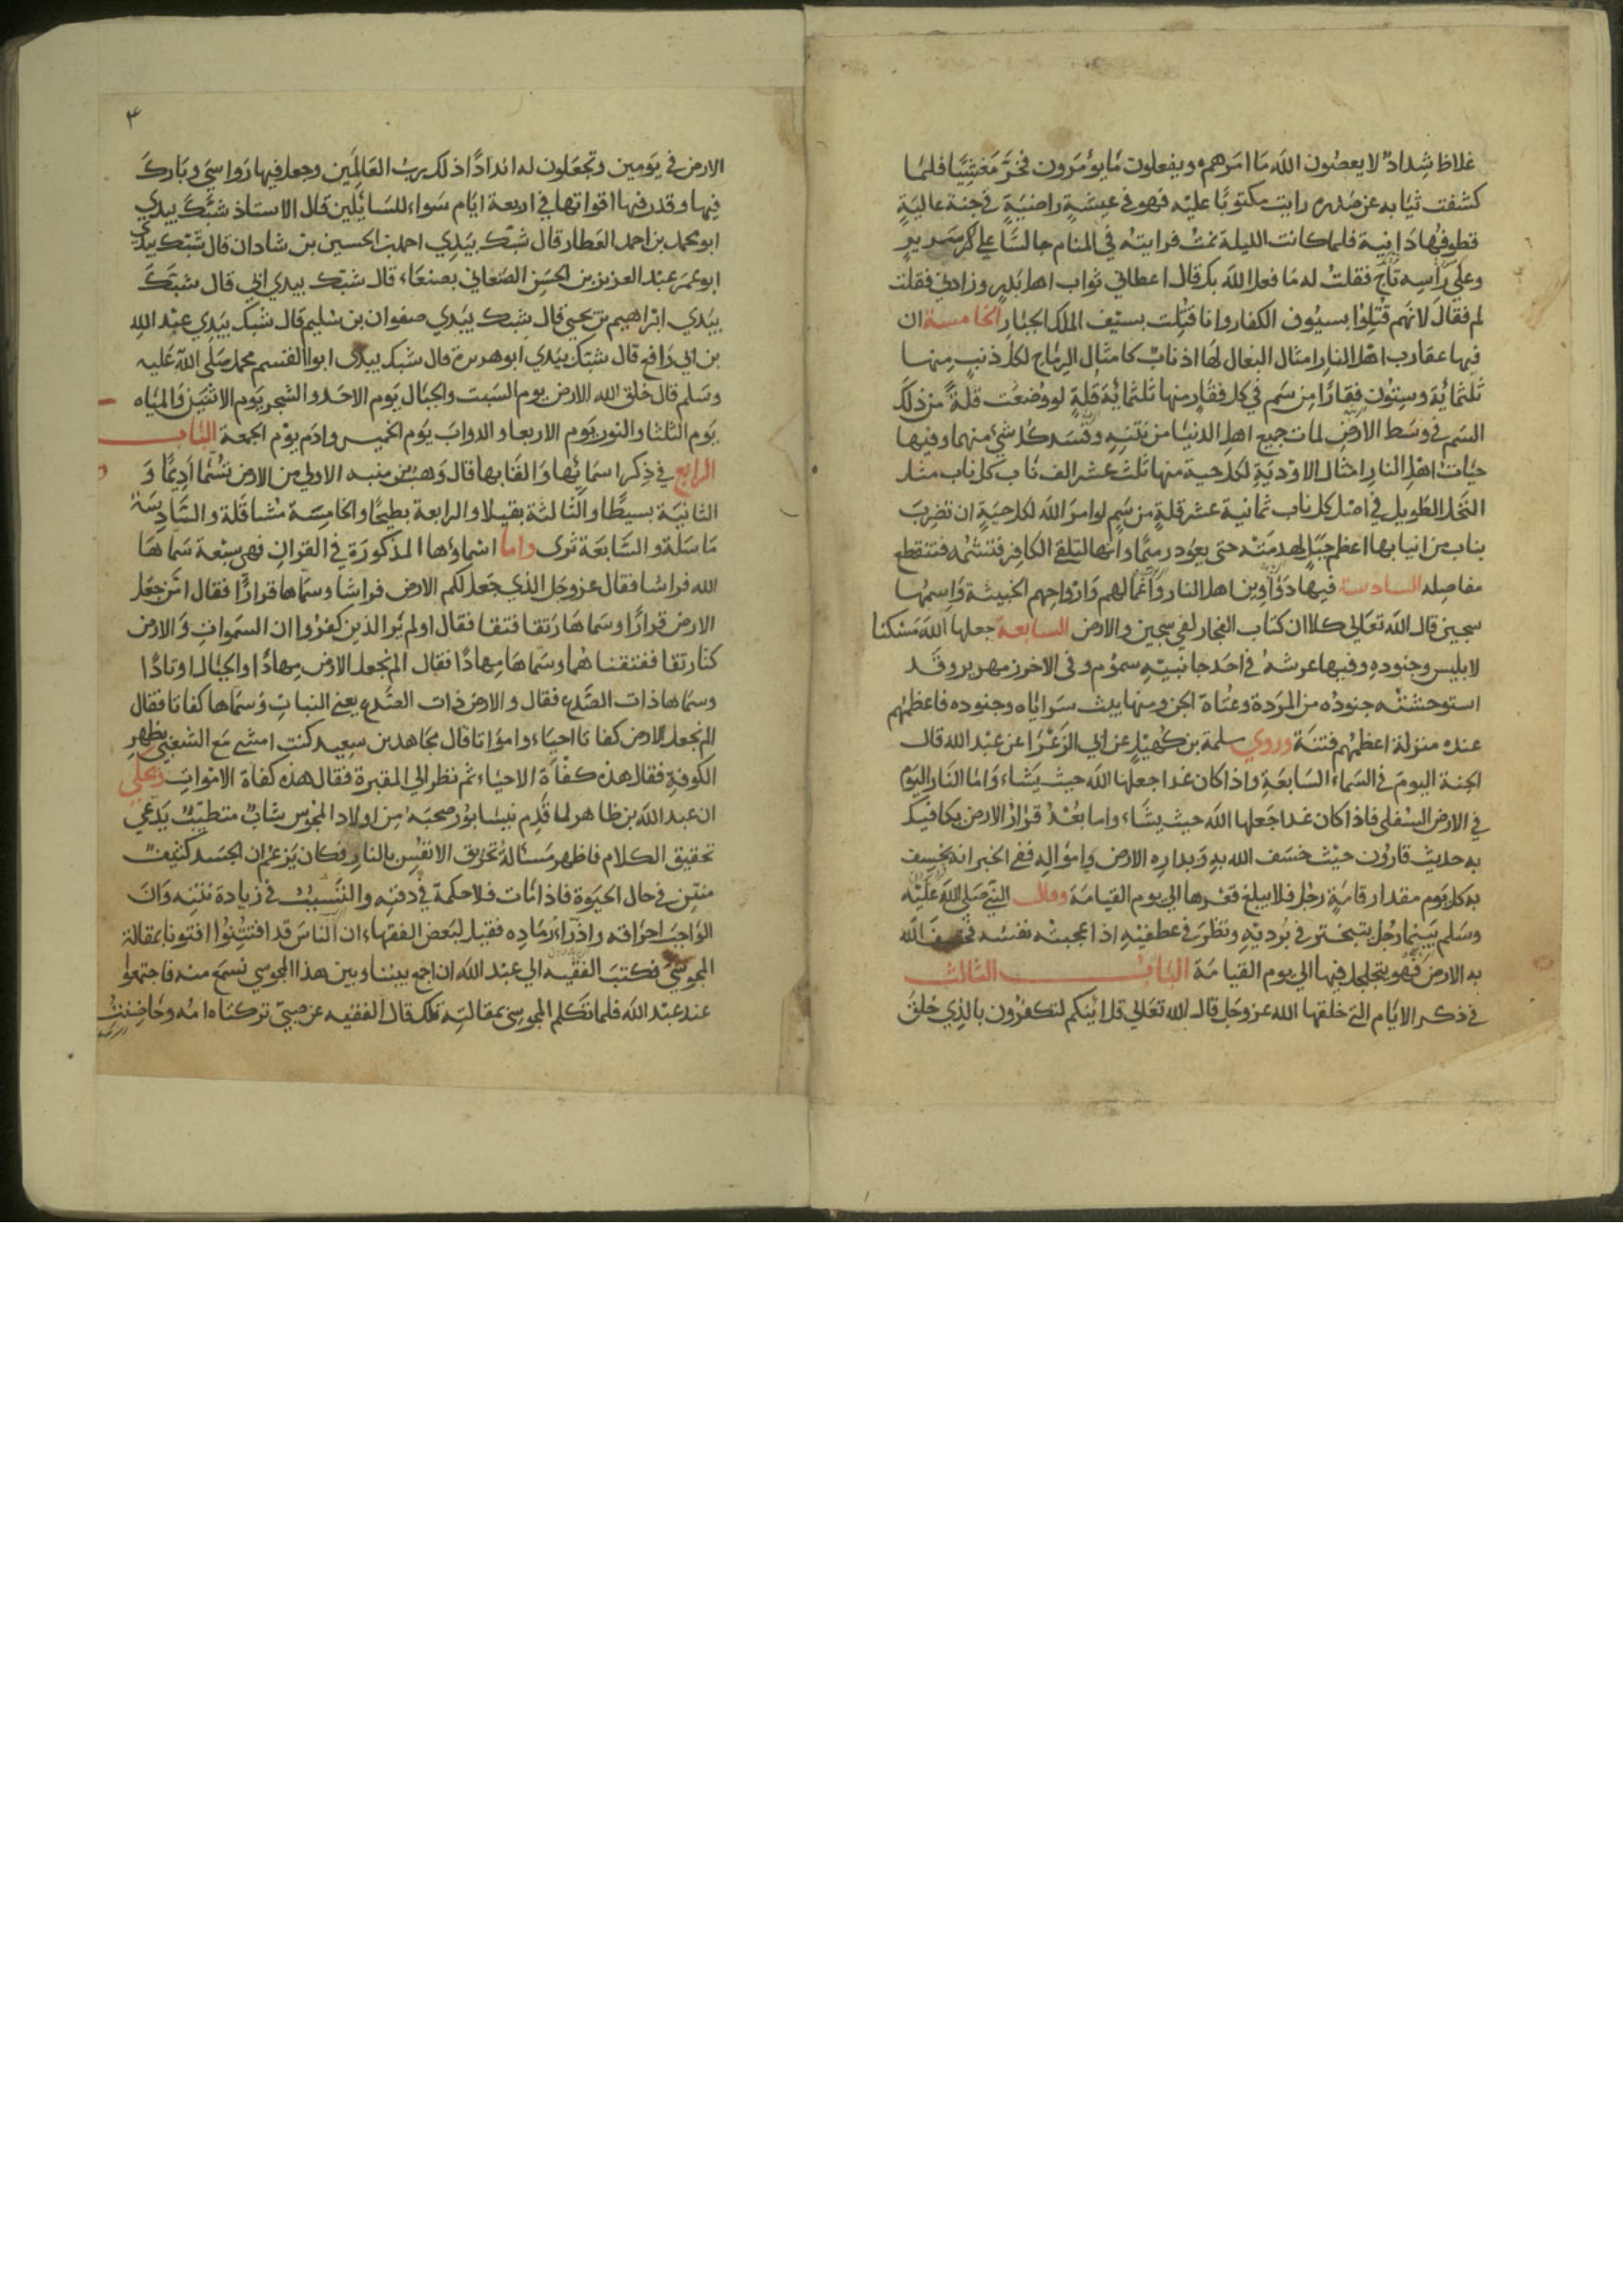 غلاظ شداد لا يعصون الله ما امرهم ويفعلون ما يؤمرون فخر مغشيا فلما
كشفت ثيابه عن صدره رايت مكتوبا عليه فهو في عيشة راضية في جنة عالية
قطوفها دانية فلما كانت الليلة نمت فرايته في المنام جالسا على سرير
وعلى راسه تاج فقلت له ما فعل الله بك قال اعطاني ثواب اهل بدر وزادني فقلت
لم فقال لانهم قتلوا بسيوف الكفار وانا قتلت بسيف الملك الجبار الخامسة ان
فيها عقارب اهل النار امثال البغال لها اذناب كامثال الرماح لكل ذنب منها
ثلثمائة وستون فقارا من سم في كل فقار منها ثلثمائة قلة لو وضعت قلة من ذلك
السم في وسط الارض لمات جميع اهل الدنيا من نتنه وفسد كل شئ منهما وفيها
حيات اهل النار امثال الاودية لكل حية منها ثلث عشر الف ناب كل ناب مثل
النخل الطويل في اصل كل ناب ثمانية عشر قلة من سم لو امر الله لكل حية ان تضرب
بناب من انيابها اعظم جبل لهدمته حتى يعود رميما وانها لتلقى الكافر فتنشمه فتنقطع
مفاصله السادسة فيها دواوين اهل النار واعمالهم وارواحهم الخبيثة واسمها
سجين قال الله تعالى كلا ان كتاب الفجار لفي سجين والارض السابعة جعلها الله مسكنا
لابليس وجنوده وفيها عرشه في احد جانبيه سموم وفى الاخر زمهرير وقد
استوحشته جنوده من المردة وعتاة الجن ومنها يبث سراياه وجنوده فاعظمهم
عنده منزلة اعظمهم فتنة وروي سلمة بن كهيل عن ابي الزعرا عن عبد الله قال
الجنة اليوم في السماء السابعة واذا كان غدا جعلها الله حيث يشاء واما النار اليوم
في الارض السفلى فاذا كان غدا جعلها الله حيث يشاء واما بعد قرار الارض يكافيك
به حديث قارون حيث خسف الله به وبداره الارض وامواله ففي الخبر انه يخسف
به كل يوم مقدار قامة رجل فلا يبلغ قعرها الى يوم القيامة وقال النبي صلى الله عليه
وسلم بينما رجل يتبختر في برديه ونظر في عطفيه اذ اعجبته نفسه فخسف الله
به الارض فهو يتجلجل فيها الى يوم القيامة الباب الثالث
في ذكر الايام التي خلقها الله عز وجل قال الله تعالى قل ائنكم لتكفرون بالذي خلق
٣
الارض في يومين وتجعلون له اندادا ذلك رب العالمين وجعل فيها رواسي وبارك
فيها وقدر فيها اقواتها في اربعة ايام سواء للسايلين قال الاستاذ شبك بيدي
ابو محمد بن احمد العطار قال شبك بيدي احمد بن الحسين بن شادان قال شبك بيدي
ابو عمر عبد العزيز بن الحسن الصنعاني بصنعاء قال شبك بيدي ابي قال شبك
بيدي ابراهيم بن يحيى قال شبك بيدي صفوان بن سليم قال شبك بيدي عبد الله
بن ابي رافع قال شبك بيدي ابو هريرة قال شبك بيدى ابو القسم محمد صلى الله عليه
وسلم قال خلق الله الارض يوم السبت والجبال يوم الاحد والشجر يوم الاثنين والمياه
يوم الثلثا والنور يوم الاربعا والدواب يوم الخميس وادم يوم الجمعة الباب
الرابع في ذكر اسمائها والقابها قال وهب بن منبه الاولى من الارض تسمى اديما و
الثانية بسيطا والثالثة بقيلا والرابعة بطيحا والخامسة متثاقلة والسادسة
ماسلة والسابعة ثرى واما اسماؤها المذكورة في القران فهي سبعة سماها
الله فراشا فقال عز وجل الذي جعل لكم الارض فراشا وسماها قرارا فقال امن جعل
الارض قرارا وسماها رتقا فتقا فقال اولم ير الذين كفروا ان السموات والارض
كانتا رتقا ففتقناهما وسماها مهادا فقال الم نجعل الارض مهادا والجبال اوتادا
وسماها ذات الصدع فقال والارض ذات الصدع يعني النبات وسماها كفاتا فقال
الم نجعل الارض كفاتا احياء وامواتا قال مجاهد بن سعيد كنت امشي مع الشعبي بظهر
الكوفة فقال هذه كفاة الاحياء ثم نظر الى المقبرة فقال هذه كفاة الاموات وحكي
ان عبد الله بن طاهر لما قدم نيسابور صحبه من اولاد المجوس شاب متطبب يدعي
تحقيق الكلام فاظهر مسئالة تحريق الانفس بالنار فكان يزعم ان الجسد كثيف
منتن في حال الحيوة فاذا مات فلا حكمة في دفنه والتسبب في زيادة نتنه وان
الواجب احراقه واذراء رماده فقيل لبعض الفقهاء ان الناس قد افتتنوا افتونا بمقالة
المجوسي فكتب الفقيه الى عبد الله ان اجمع بيننا وبين هذا المجوسي نسمع منه فاجتمعوا
عند عبد الله فلما تكلم المجوسى بمقالته تلك قال الفقيه عن صبي تركناه امه وحاضنته